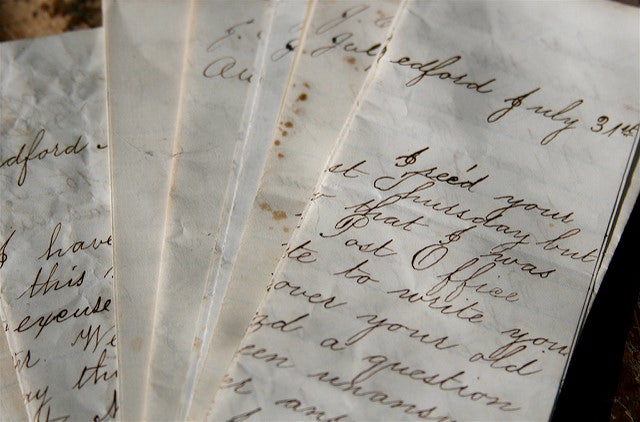 dford
I have
this
excuse
r. We
y th
J.
Au
J.
Jul
edford July 31st
I rec'd your
st Thursday but
r that I was
Post Office
te to write you
over your old
zd a question
een unansw
er ans